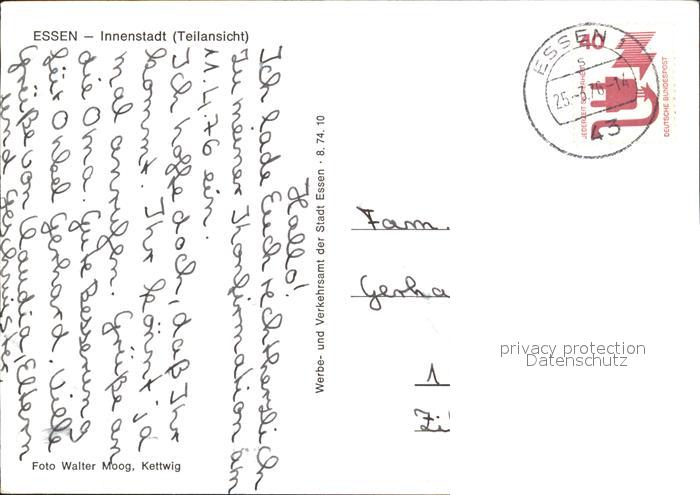 ESSEN – Innenstadt (Teilansicht)
Hallo!
Ich lade Euch recht herzlich
zu meiner Konfirmation am
11.4.76 ein.
Ich hoffe doch, daß Ihr
kommt. Ihr könnt ja
mal anrufen. Grüße an
die Oma. Gute Besserung
für Onkel Gerhard. Viele
Grüße von Claudia, Eltern
und Geschwister
Foto Walter Moog, Kettwig
Werbe- und Verkehrsamt der Stadt Essen · 8.74.10
ESSEN
s
25.-3.76-14
43
40
JEDERZEIT SICHERHEIT
DEUTSCHE BUNDESPOST
Fam.
Gerha
1
privacy protection
Datenschutz